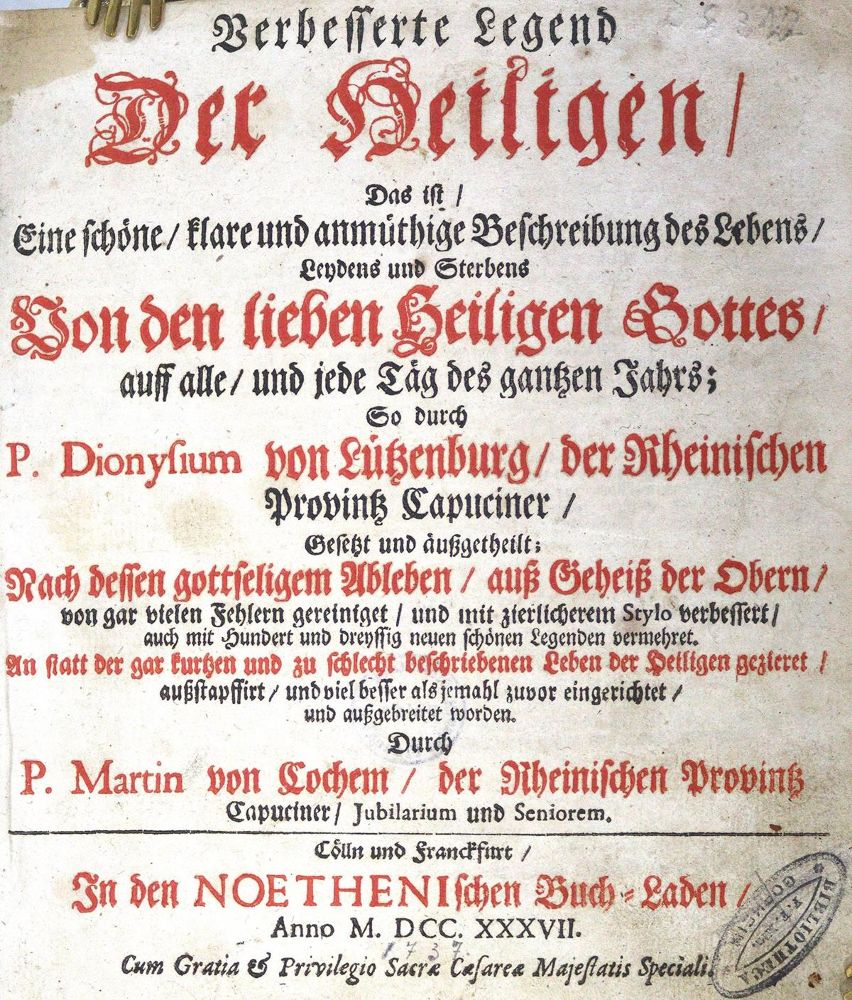 Verbesserte Legend
Der Heiligen /
Das ist /
Eine schöne / klare und anmüthige Beschreibung des Lebens /
Leydens und Sterbens
Von den lieben Heiligen Gottes /
auff alle / und jede Täg des gantzen Jahrs;
So durch
P. Dionysium von Lützenburg / der Rheinischen
Provintz Capuciner /
Gesetzt und äußgetheilt:
Nach dessen gottseligem Ableben / auß Geheiß der Obern /
von gar vielen Fehlern gereiniget / und mit zierlicherem Stylo verbessert /
auch mit Hundert und dreyssig neuen schönen Legenden vermehret.
An statt der gar kurtzen und zu schlecht beschriebenen Leben der Heiligen gezieret /
außstapffirt / und viel besser als jemahl zuvor eingerichtet /
und außgebreitet worden.
Durch
P. Martin von Cochem / der Rheinischen Provintz
Capuciner / Jubilarium und Seniorem.
Cölln und Franckfurt /
In den NOETHENIschen Buch-Laden /
Anno M. DCC. XXXVII.
1737
Cum Gratia & Privilegio Sacræ Cæsareæ Majestatis Speciali.
BIBLIOTHECA